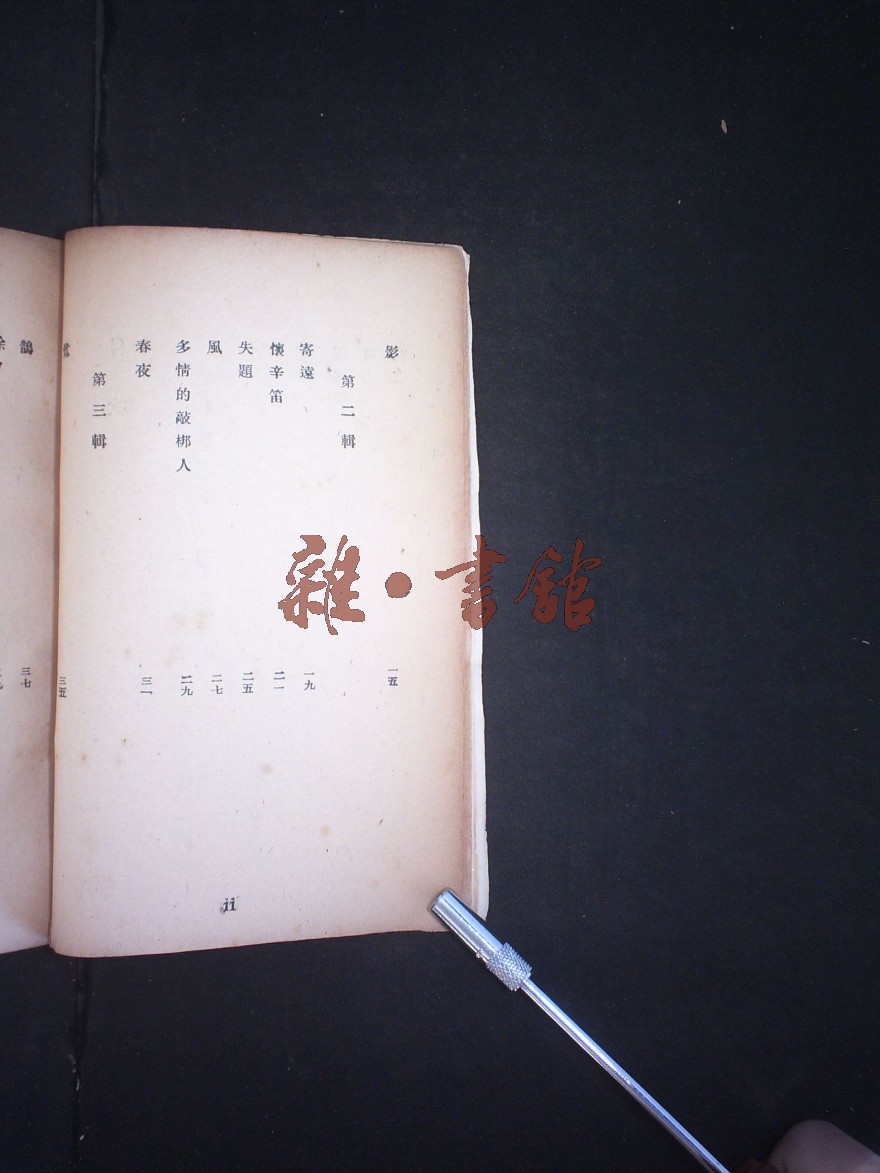 影 一五
第二輯
寄遠 一九
懷辛笛 二一
失題 二五
風 二七
多情的敲梆人 二九
春夜 三一
第三輯
三五
鵲 三七
ii
雜·書館